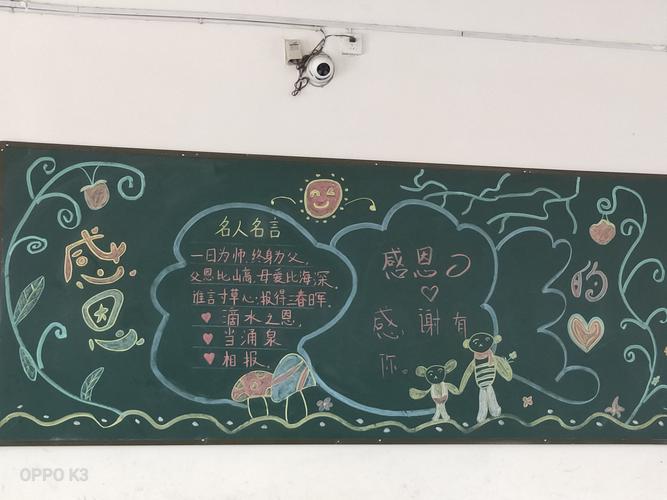 感恩
的
名人名言
一日为师,终身为父,
父恩比山高,母爱比海深。
谁言寸草心·报得三春晖。
滴水之恩,
当涌泉
相报。
感恩
感谢有
你。
OPPO K3